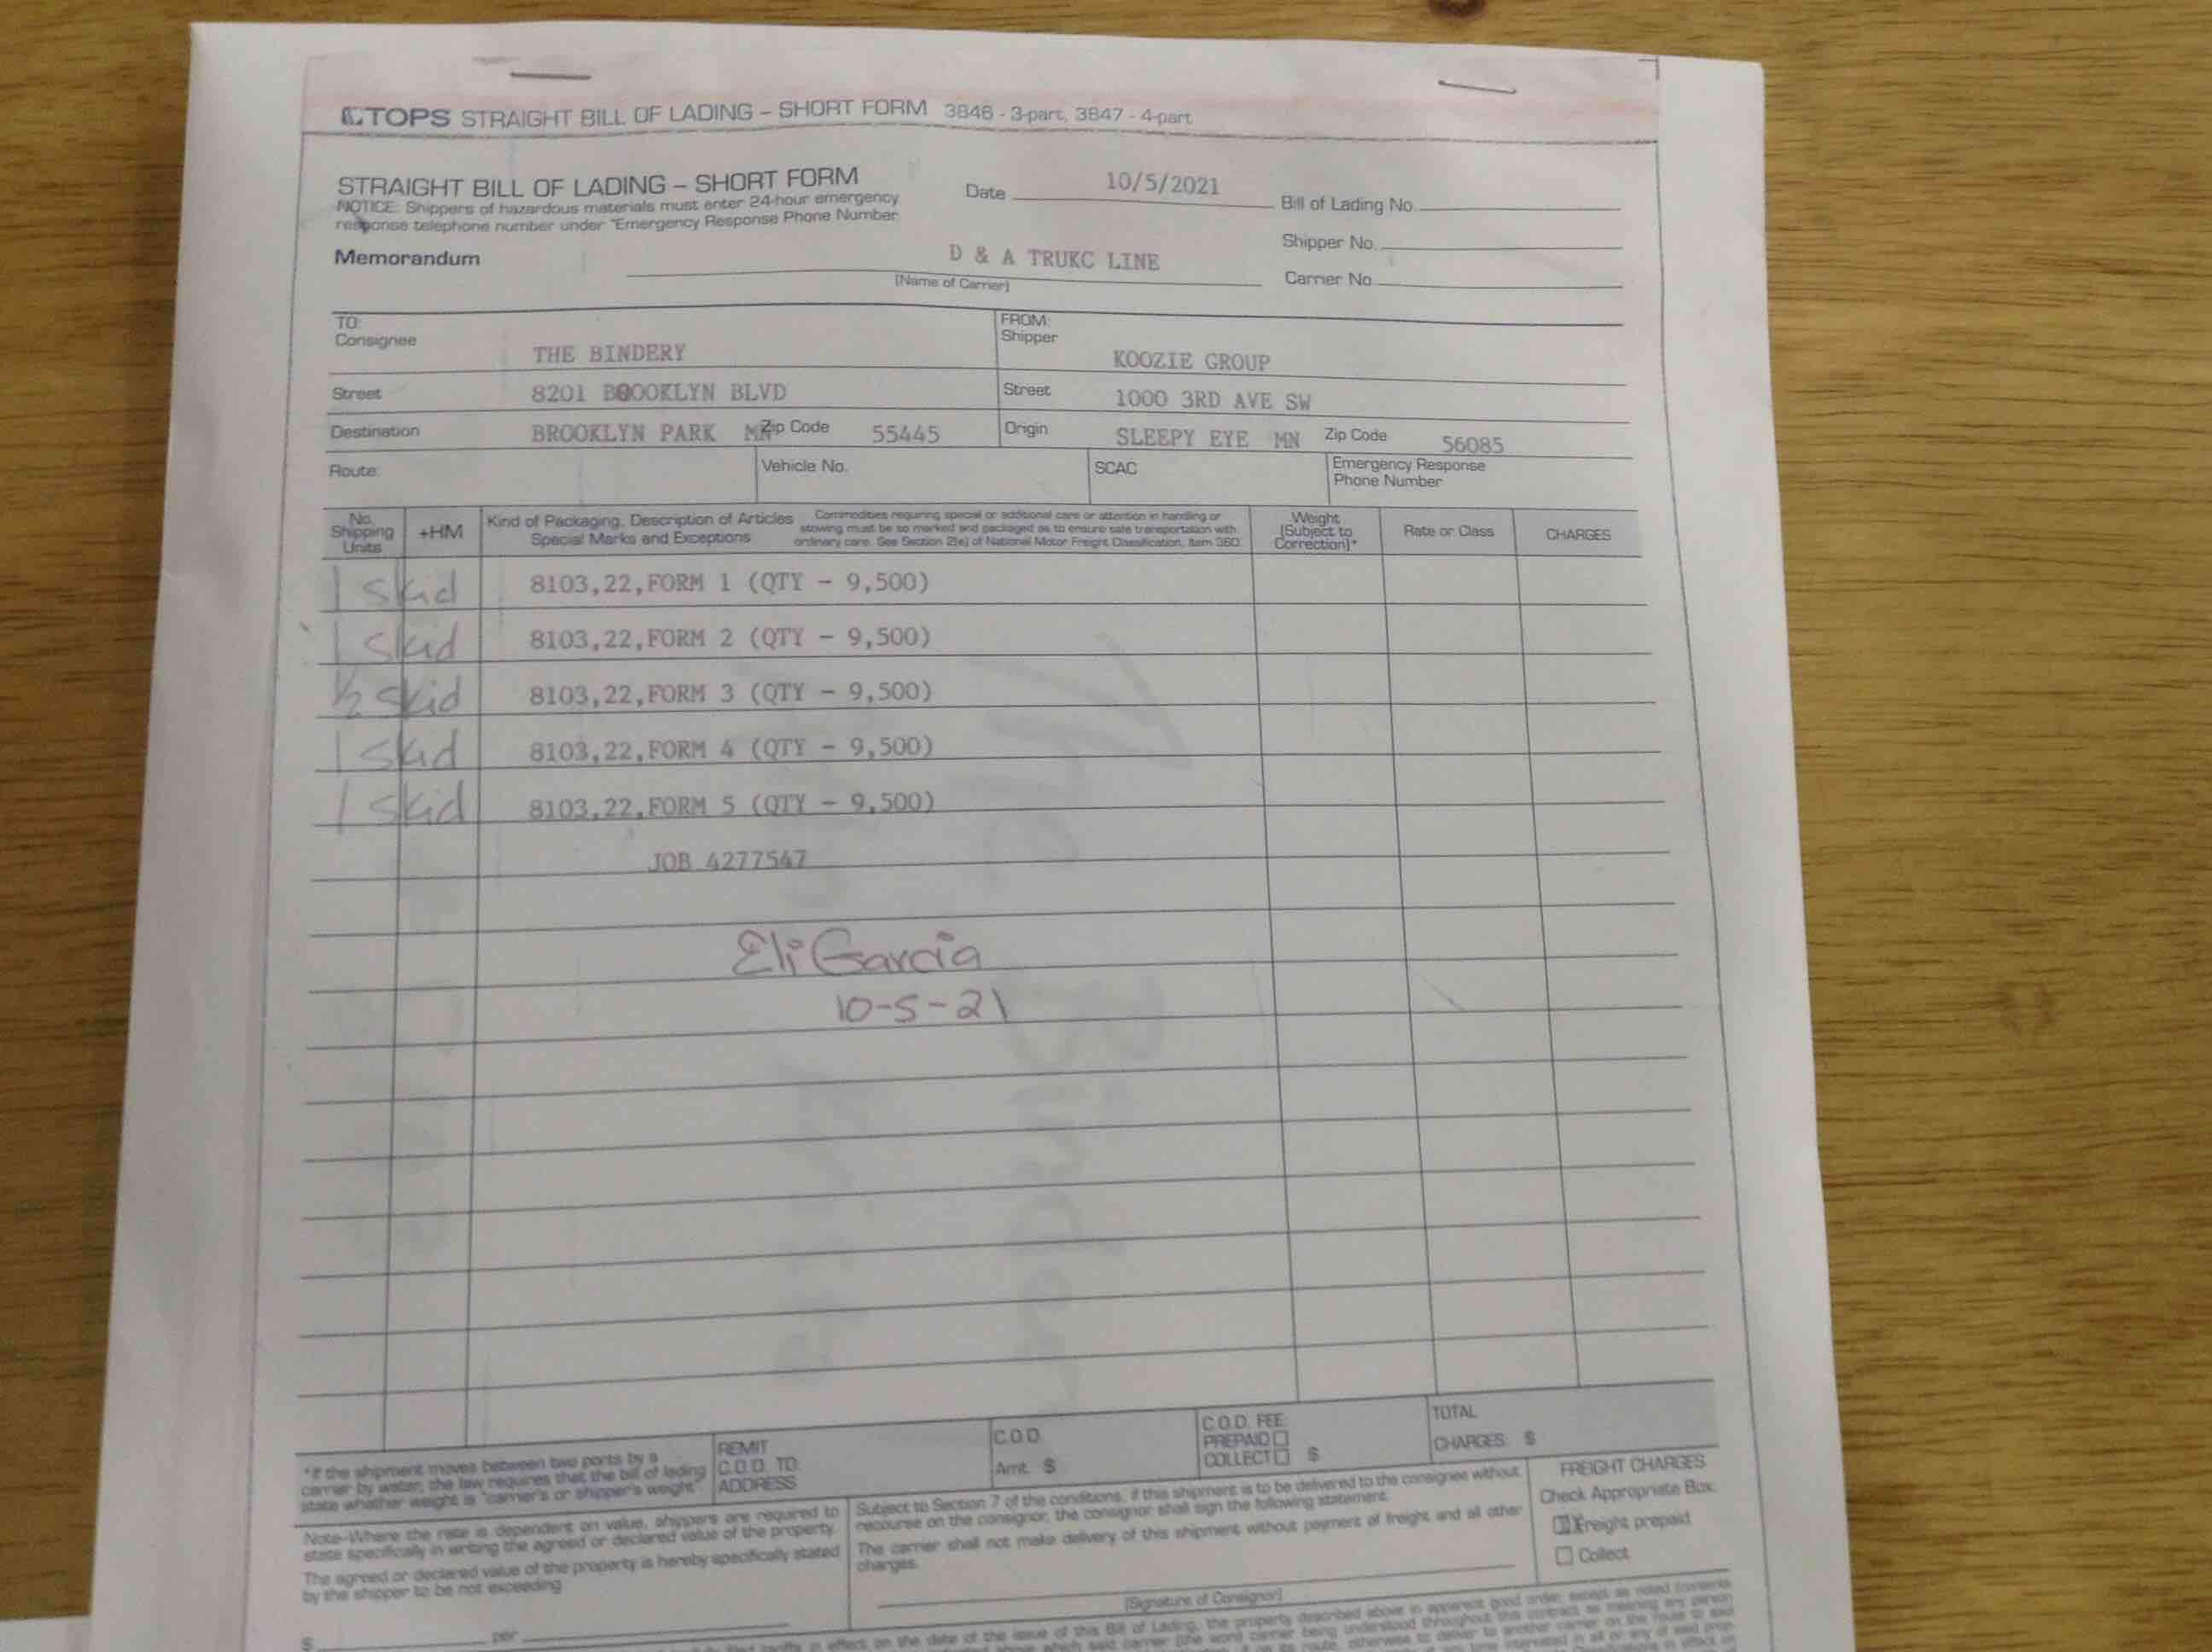 TOPS STRAIGHT BILL OF LADING – SHORT FORM 3846 - 3-part, 3847 - 4-part
STRAIGHT BILL OF LADING – SHORT FORM
NOTICE: Shippers of hazardous materials must enter 24-hour emergency
response telephone number under "Emergency Response Phone Number.
Date 10/5/2021
Bill of Lading No.
Shipper No.
Carrier No.
Memorandum
D & A TRUKC LINE
(Name of Carrier)
TO:
Consignee THE BINDERY
Street 8201 BROOKLYN BLVD
Destination BROOKLYN PARK MN Zip Code 55445
FROM:
Shipper KOOZIE GROUP
Street 1000 3RD AVE SW
Origin SLEEPY EYE MN Zip Code 56085
Route:
Vehicle No.
SCAC
Emergency Response
Phone Number
No.
Shipping
Units
+HM
Kind of Packaging, Description of Articles
Special Marks and Exceptions
Commodities requiring special or additional care or attention in handling or
stowing must be so marked and packaged as to ensure safe transportation with
ordinary care. See Section 2(e) of National Motor Freight Classification, Item 360.
Weight
(Subject to
Correction)*
Rate or Class
CHARGES
1 skid 8103,22,FORM 1 (QTY – 9,500)
1 skid 8103,22,FORM 2 (QTY – 9,500)
½ skid 8103,22,FORM 3 (QTY – 9,500)
1 skid 8103,22,FORM 4 (QTY – 9,500)
1 skid 8103,22,FORM 5 (QTY – 9,500)
JOB 4277547
Eli Garcia
10-5-21
*If the shipment moves between two ports by a
carrier by water, the law requires that the bill of lading
state whether weight is "carrier's or shipper's weight".
REMIT
C.O.D. TO:
ADDRESS
C.O.D.
Amt. $
C.O.D. FEE:
PREPAID
COLLECT $
TOTAL
CHARGES: $
Note–Where the rate is dependent on value, shippers are required to
state specifically in writing the agreed or declared value of the property.
The agreed or declared value of the property is hereby specifically stated
by the shipper to be not exceeding
$ per
Subject to Section 7 of the conditions, if this shipment is to be delivered to the consignee without
recourse on the consignor, the consignor shall sign the following statement.
The carrier shall not make delivery of this shipment without payment of freight and all other
charges.
(Signature of Consignor)
FREIGHT CHARGES
Check Appropriate Box:
Freight prepaid
Collect
in effect on the date of the issue of this Bill of Lading, the property described above in apparent good order, except as noted (contents